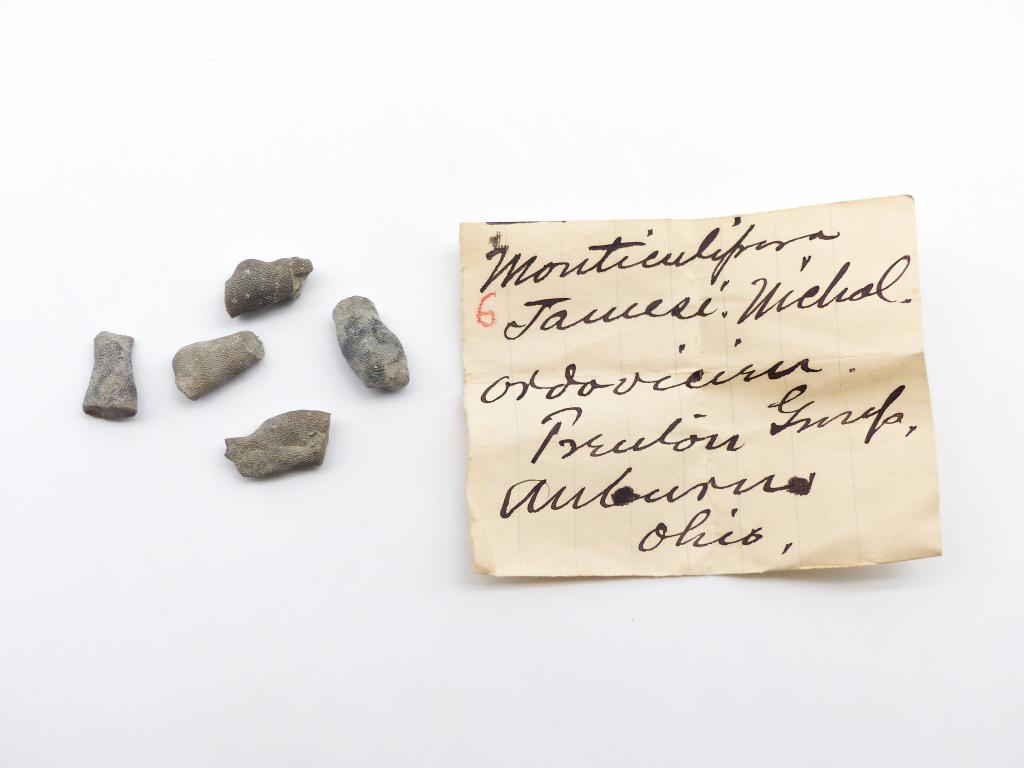 Monticulipora
6 Jamesi. Nichol.
Ordovicien.
Trenton Group,
Auburn
Ohio,